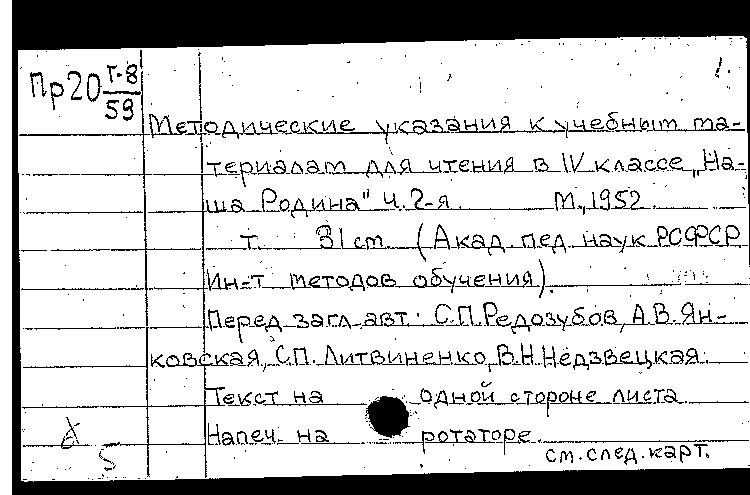 1.
Пр20 Т-8
59
Методические указания к учебным ма-
териалам для чтения в IV классе „На-
ша Родина" ч. 2-я М., 1952.
т. 31 cm. (Акад. пед. наук РСФСР
Ин-т методов обучения).
Перед загл. авт.: С.П.Редозубов, А.В.Ян-
ковская, С.П.Литвиненко, В.Н.Недзвецкая.
Текст на одной стороне листа
Напеч. на ротаторе.
см.след.карт.
5